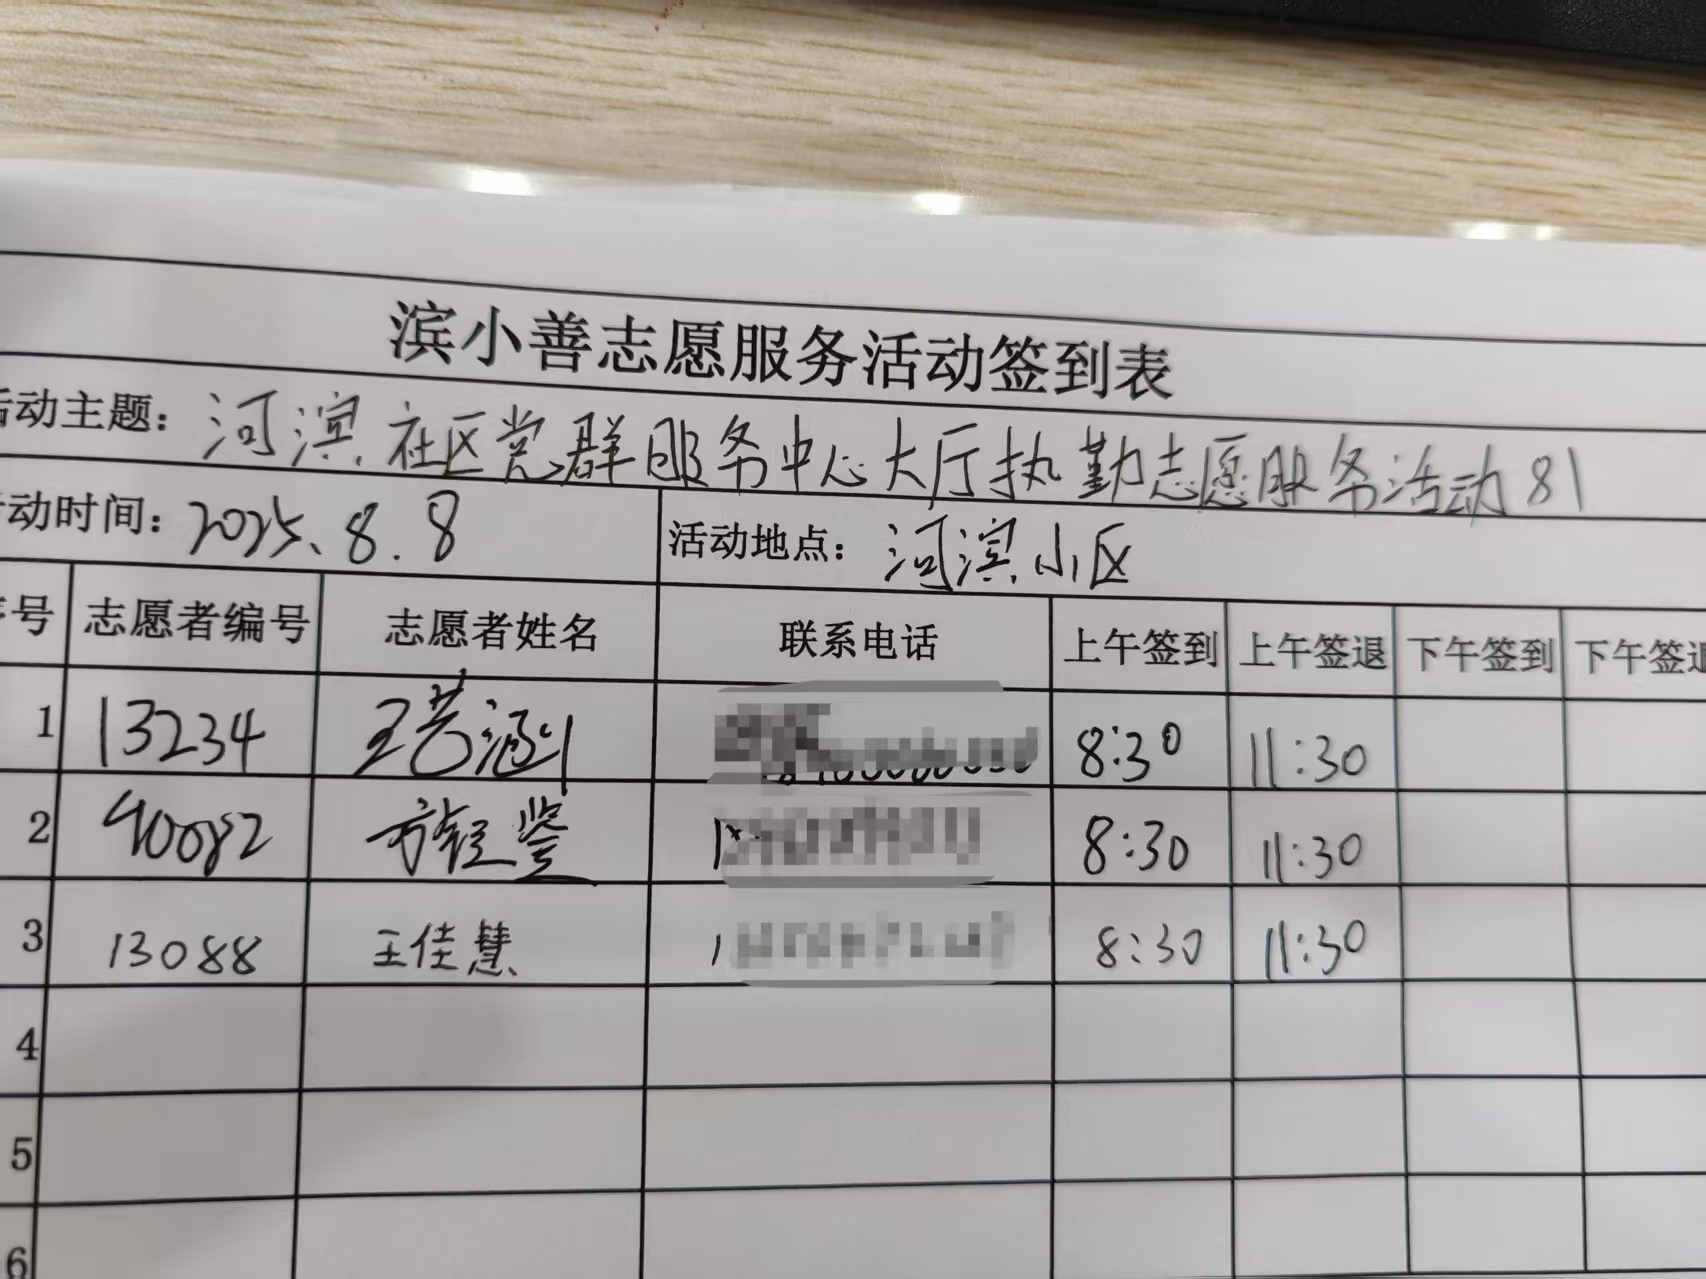 滨小善志愿服务活动签到表
活动主题：河滨社区党群服务中心大厅执勤志愿服务活动81
活动时间：2025.8.8 活动地点：河滨小区
序号 志愿者编号 志愿者姓名 联系电话 上午签到 上午签退 下午签到 下午签退
1 13234 王艺涵 8:30 11:30
2 40082 8:30 11:30
3 13088 王佳慧 1 8:30 11:30
4
5
6